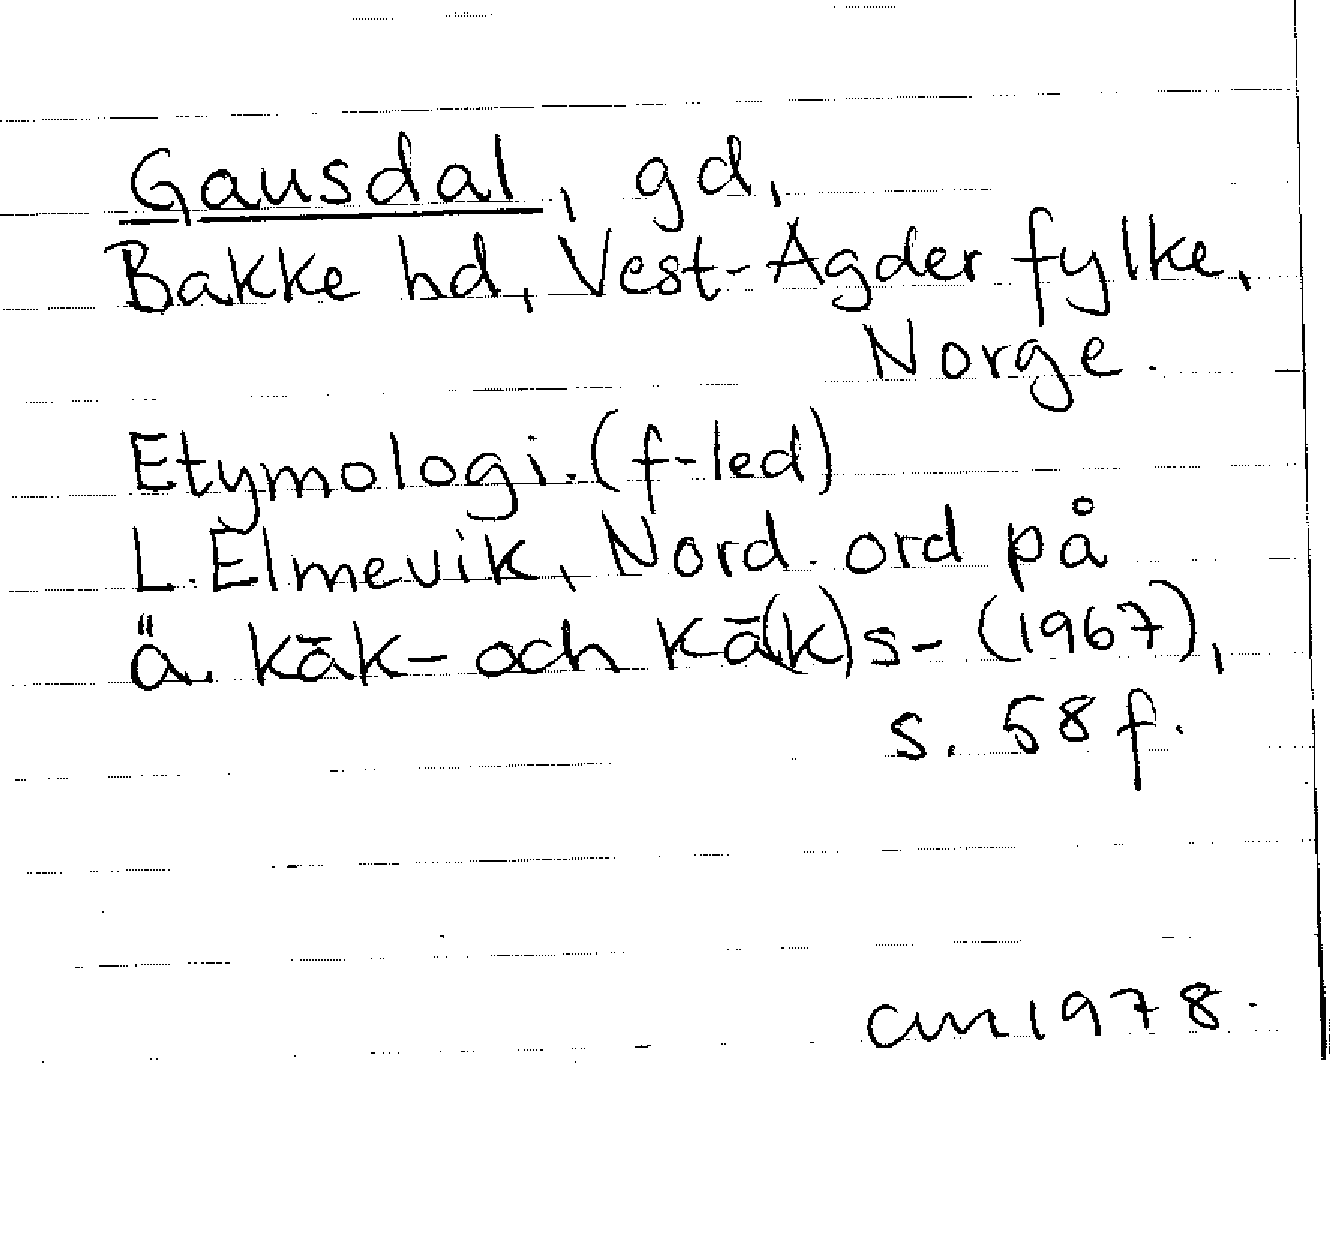 Gausdal, gd,
Bakke hd, Vest-Agder fylke,
Norge.
Etymologi. (f-led)
L. Elmevik, Nord. ord på
ä. kāk- och kā(k)s- (1967),
s. 58 f.
am 1978.